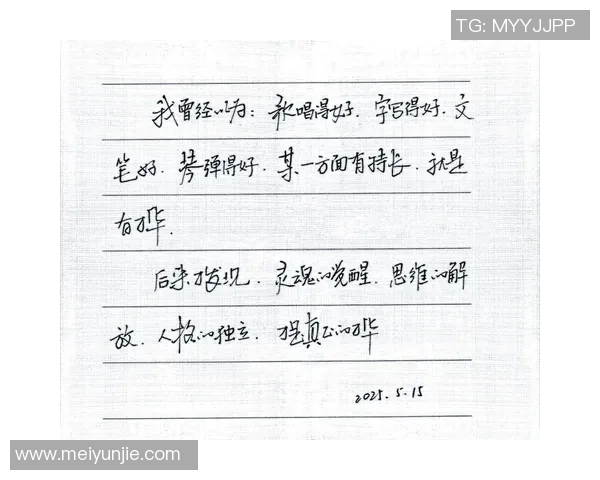 TG: MYYJJPP
我曾经以为：歌唱得好、字写得好、文
笔好、琴弹得好、某一方面有特长、就是
有才华。
后来才发现、灵魂的觉醒、思维的解
放、人格的独立、才是真正的才华
2025.5.15
www.meiyunjie.com